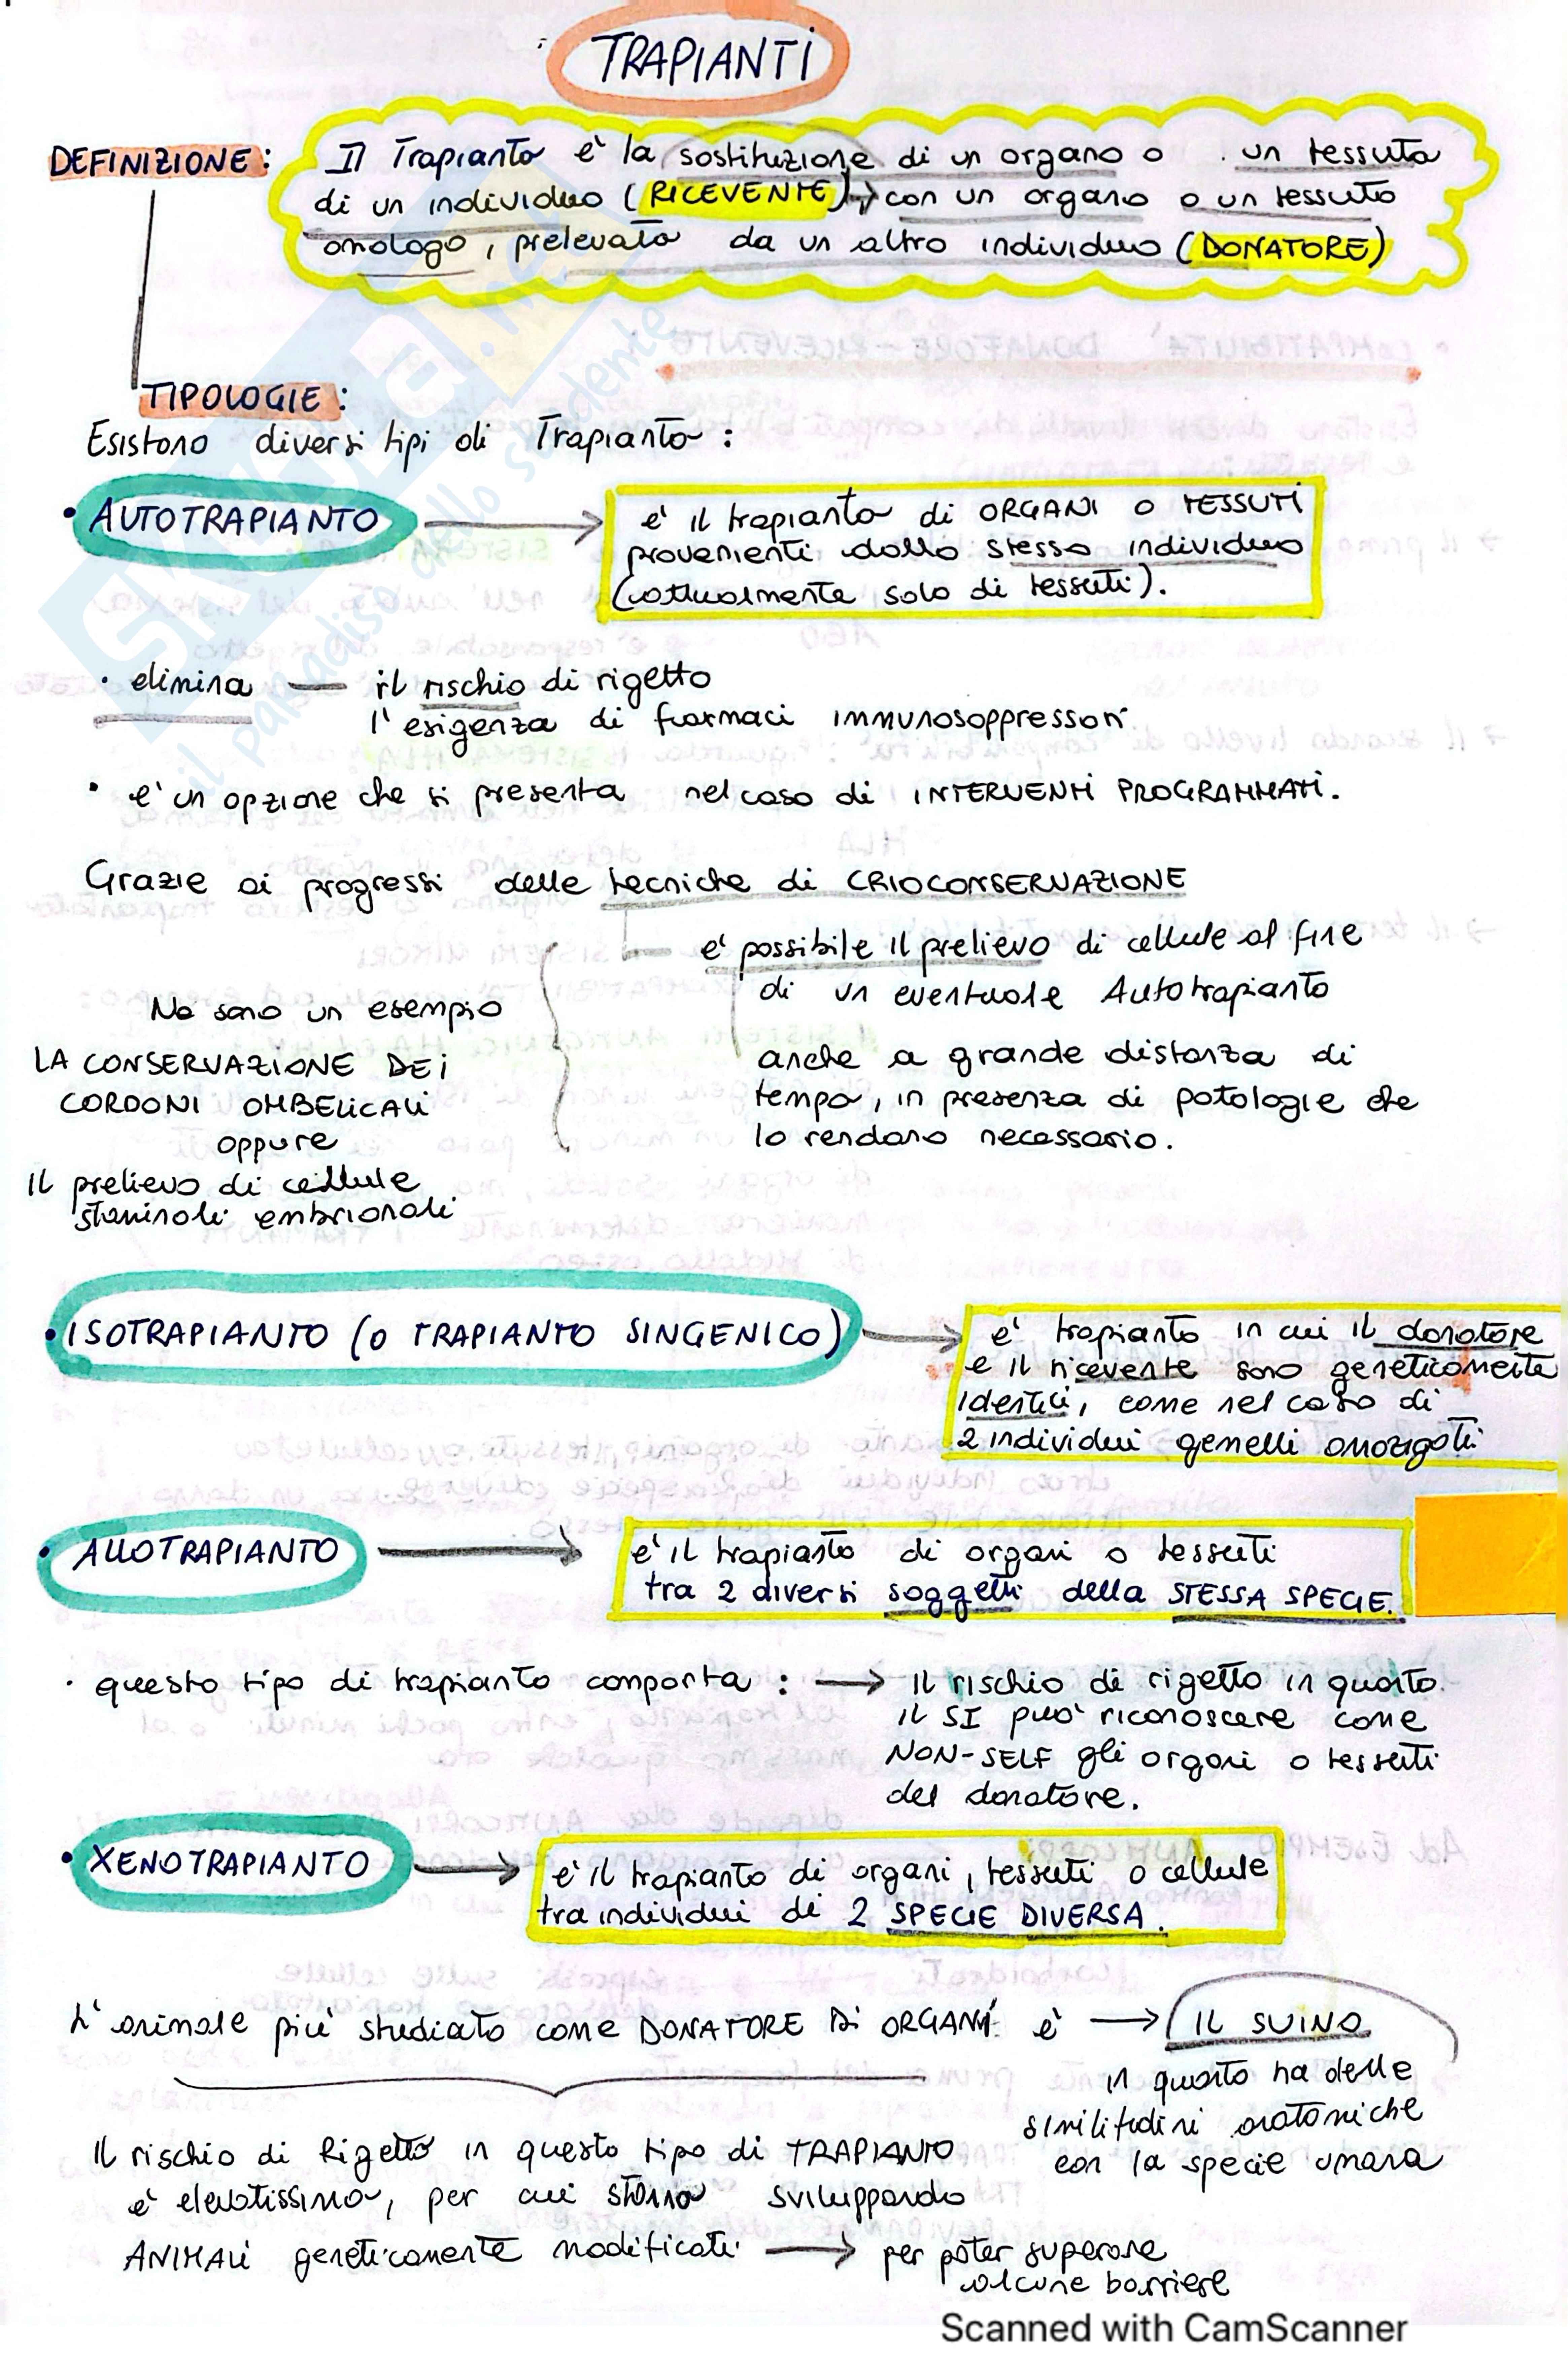 TRAPIANTI
DEFINIZIONE:
Il Trapianto e' la sostituzione di un organo o un tessuto
di un individuo (RICEVENTE), con un organo o un tessuto
omologo, prelevato da un altro individuo (DONATORE)
TIPOLOGIE:
Esistono diversi tipi di Trapianto:
• AUTOTRAPIANTO
e' il trapianto di ORGANI O TESSUTI
provenienti dallo stesso individuo
(attualmente solo di tessuti).
• elimina — il rischio di rigetto
l'esigenza di farmaci immunosoppressori
• e' un opzione che si presenta nel caso di INTERVENTI PROGRAMMATI.
Grazie ai progressi delle tecniche di CRIOCONSERVAZIONE
e' possibile il prelievo di cellule al fine
di un eventuale Autotrapianto
anche a grande distanza di
tempo, in presenza di patologie che
lo rendano necessario.
Ne sono un esempio
LA CONSERVAZIONE DEI
CORDONI OMBELICALI
oppure
Il prelievo di cellule
staminali embrionali
• ISOTRAPIANTO (O TRAPIANTO SINGENICO)
e' trapianto in cui il donatore
e il ricevente sono geneticamente
identici, come nel caso di
2 individui gemelli omozigoti
• ALLOTRAPIANTO
e' il trapianto di organi o tessuti
tra 2 diversi soggetti della STESSA SPECIE.
• questo tipo di trapianto comporta: → Il rischio di rigetto in quanto
il SI puo' riconoscere come
NON-SELF gli organi o tessuti
del donatore.
• XENOTRAPIANTO
e' il trapianto di organi, tessuti o cellule
tra individui di 2 SPECIE DIVERSA.
L'animale piu' studiato come DONATORE DI ORGANI e' → IL SUINO
in quanto ha delle
similitudini anatomiche
con la specie umana
Il rischio di Rigetto in questo tipo di TRAPIANTO
e' elevatissimo, per cui stanno sviluppando
ANIMALI geneticamente modificati → per poter superare
alcune barriere
Scanned with CamScanner
SKUOLA.net
il paradiso dello studente